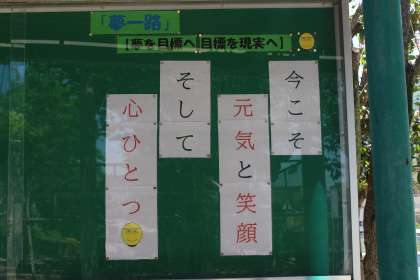 「夢一路」
【夢を目標へ 目標を現実へ】
今こそ
元気と笑顔
そして
心ひとつ